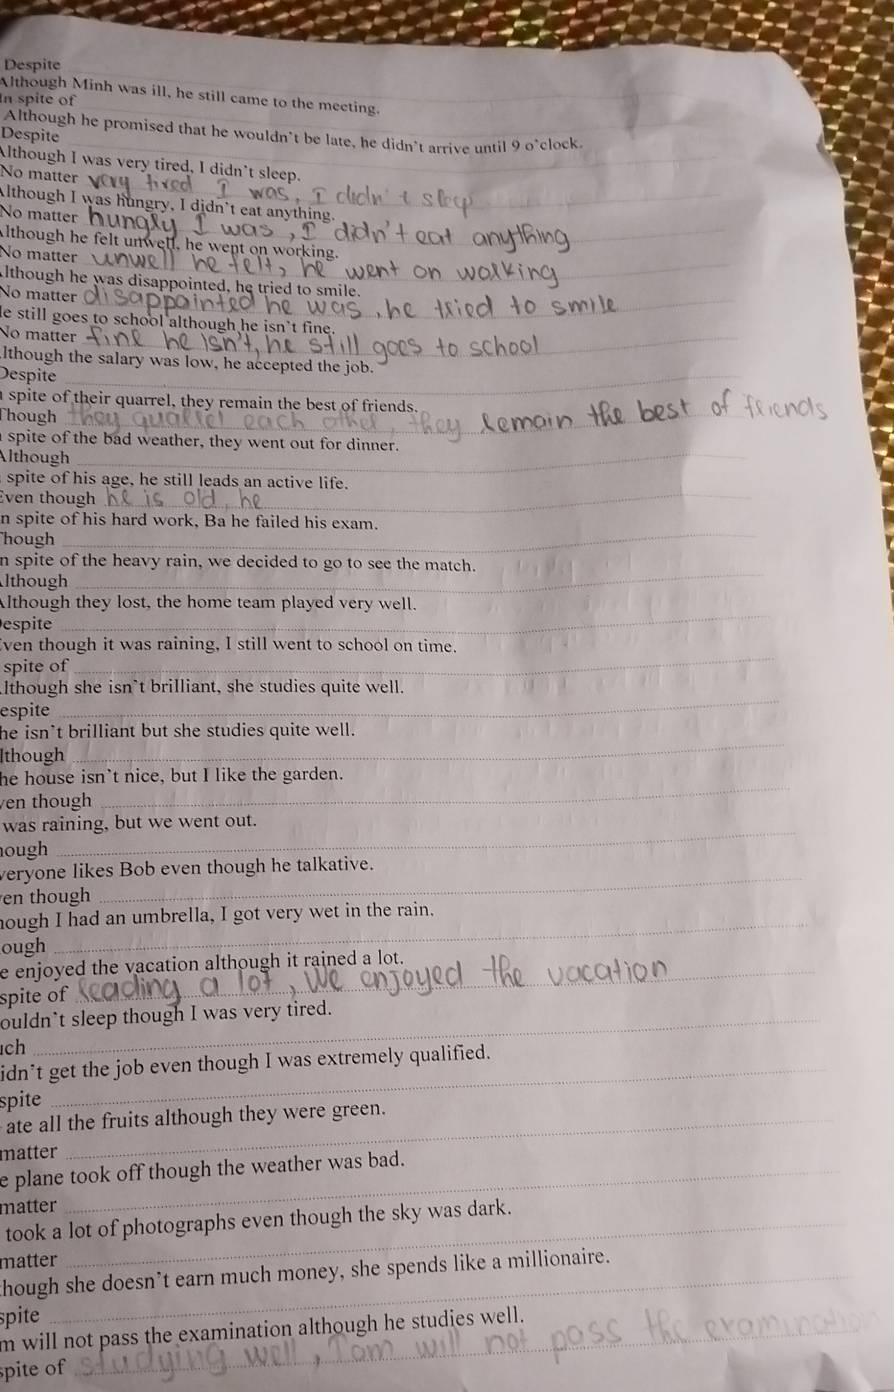 Despite
Although Minh was ill, he still came to the meeting.
In spite of
Although he promised that he wouldn't be late, he didn't arrive until 9 o'clock.
Despite
Although I was very tired, I didn't sleep.
No matter very tired I was, I didn't sleep
Although I was hungry, I didn't eat anything.
No matter hungry I was, I didn't eat anything
Although he felt unwell, he went on working.
No matter unwell he felt, he went on working
lthough he was disappointed, he tried to smile.
No matter disappointed he was, he tried to smile
He still goes to school although he isn't fine.
No matter fine he isn't, he still goes to school
lthough the salary was low, he accepted the job.
Despite
n spite of their quarrel, they remain the best of friends.
Though they quarrel each other, they remain the best of friends
n spite of the bad weather, they went out for dinner.
Although
spite of his age, he still leads an active life.
Even though he is old, he
n spite of his hard work, Ba he failed his exam.
Though
n spite of the heavy rain, we decided to go to see the match.
lthough
Although they lost, the home team played very well.
espite
Even though it was raining, I still went to school on time.
spite of
lthough she isn't brilliant, she studies quite well.
espite
he isn't brilliant but she studies quite well.
lthough
he house isn't nice, but I like the garden.
ven though
was raining, but we went out.
hough
veryone likes Bob even though he talkative.
en though
hough I had an umbrella, I got very wet in the rain.
ough
e enjoyed the vacation although it rained a lot.
spite of reading a lot, we enjoyed the vacation
ouldn't sleep though I was very tired.
uch
idn't get the job even though I was extremely qualified.
spite
ate all the fruits although they were green.
matter
e plane took off though the weather was bad.
matter
took a lot of photographs even though the sky was dark.
matter
though she doesn't earn much money, she spends like a millionaire.
spite
m will not pass the examination although he studies well.
spite of studying well, Tom will not pass the examination